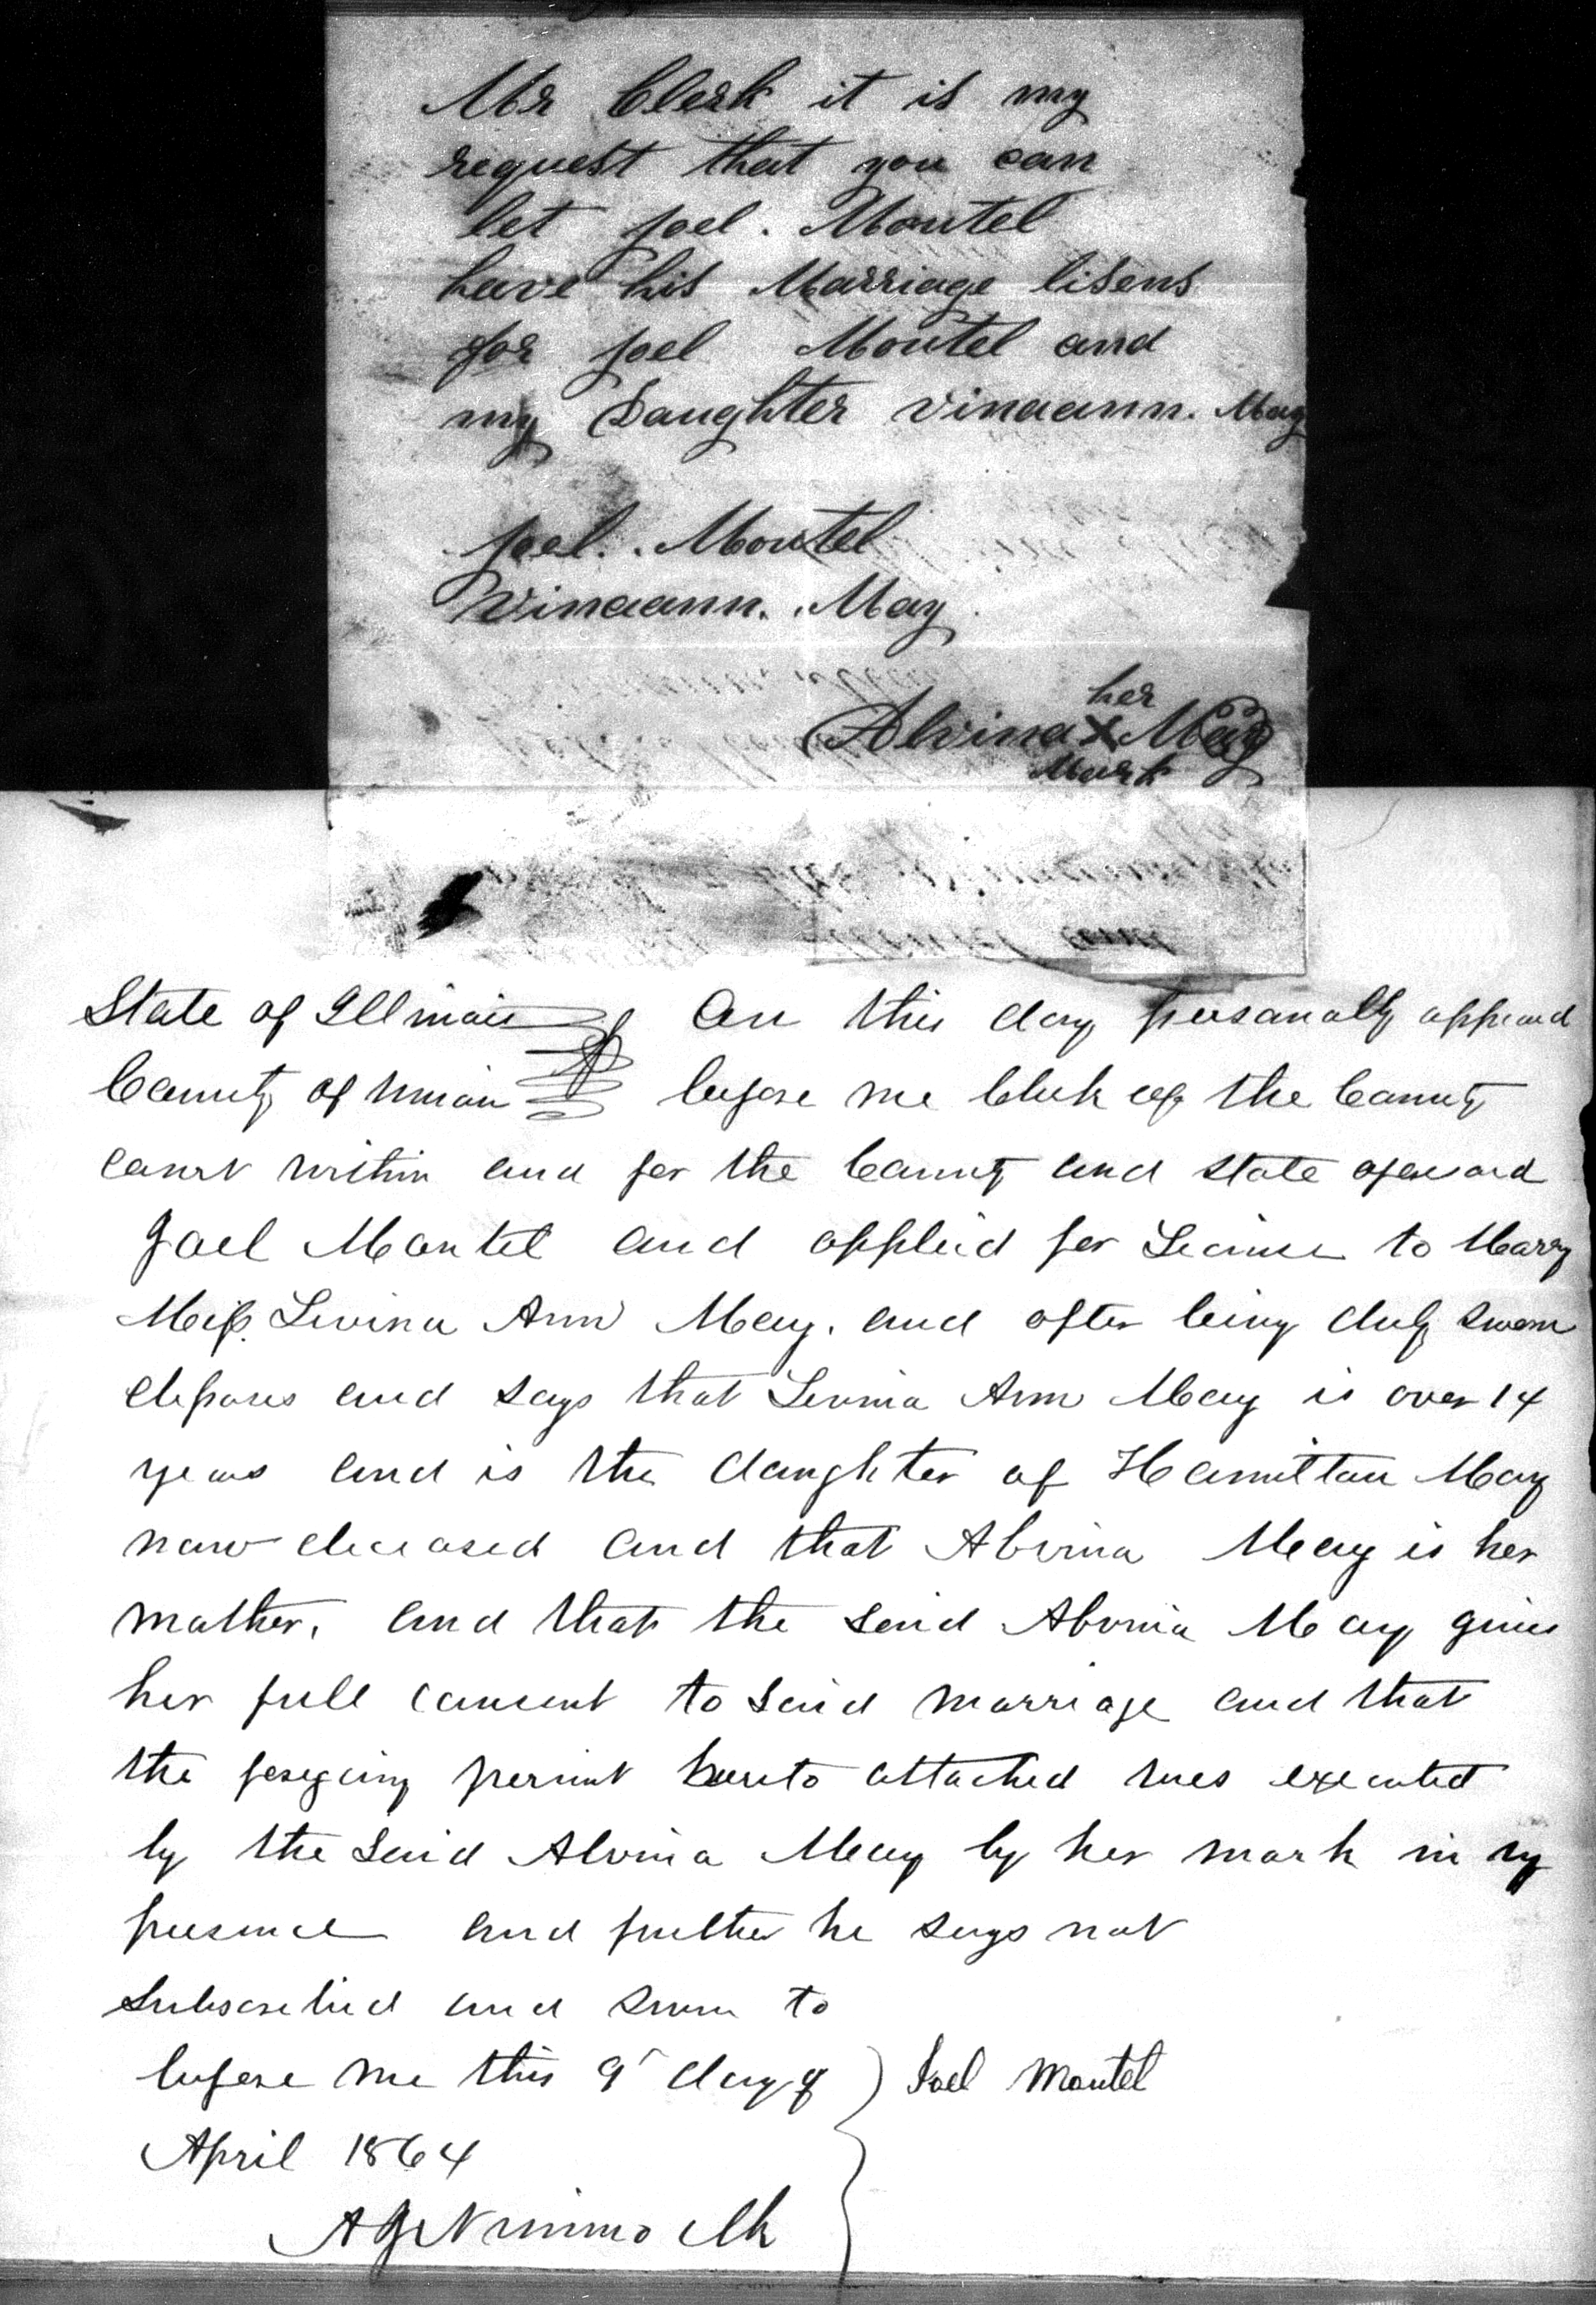 Mr Clerk it is my
request that you can
let Joel. Moutel
have his Marriage lisens
for Joel Moutel and
my Daughter vinaann. May
Joel. . Moutel
Vinaann. . May
her
Alvina X May
Mark
State of Illinois On this day personally appeard
County of Union before me Clerk of the County
Court within and for the County and State aforesaid
Joel Moutel and applied for License to Marry
Miss. Levina Ann May. and after being duly sworn
deposes and says that Levina Ann May is over 14
years and is the daughter of Hamilton May
now deceased and that Alvina May is her
mother. and that the said Alvina May gives
her full consent to said marriage and that
the foregoing permit hereto attached was executed
by the said Alvina May by her mark in my
presence and further he says not
Subscribed and sworn to
before me this 9 day of } Joel Moutel
April 1864
A J Nimmo Clk